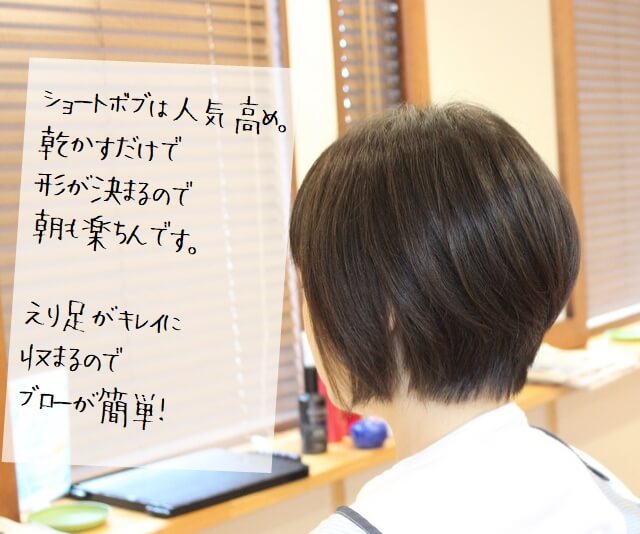 ショートボブは人気高め。
乾かすだけで
形が決まるので
朝も楽ちんです。
えり足がキレイに
収まるので
ブローが簡単!